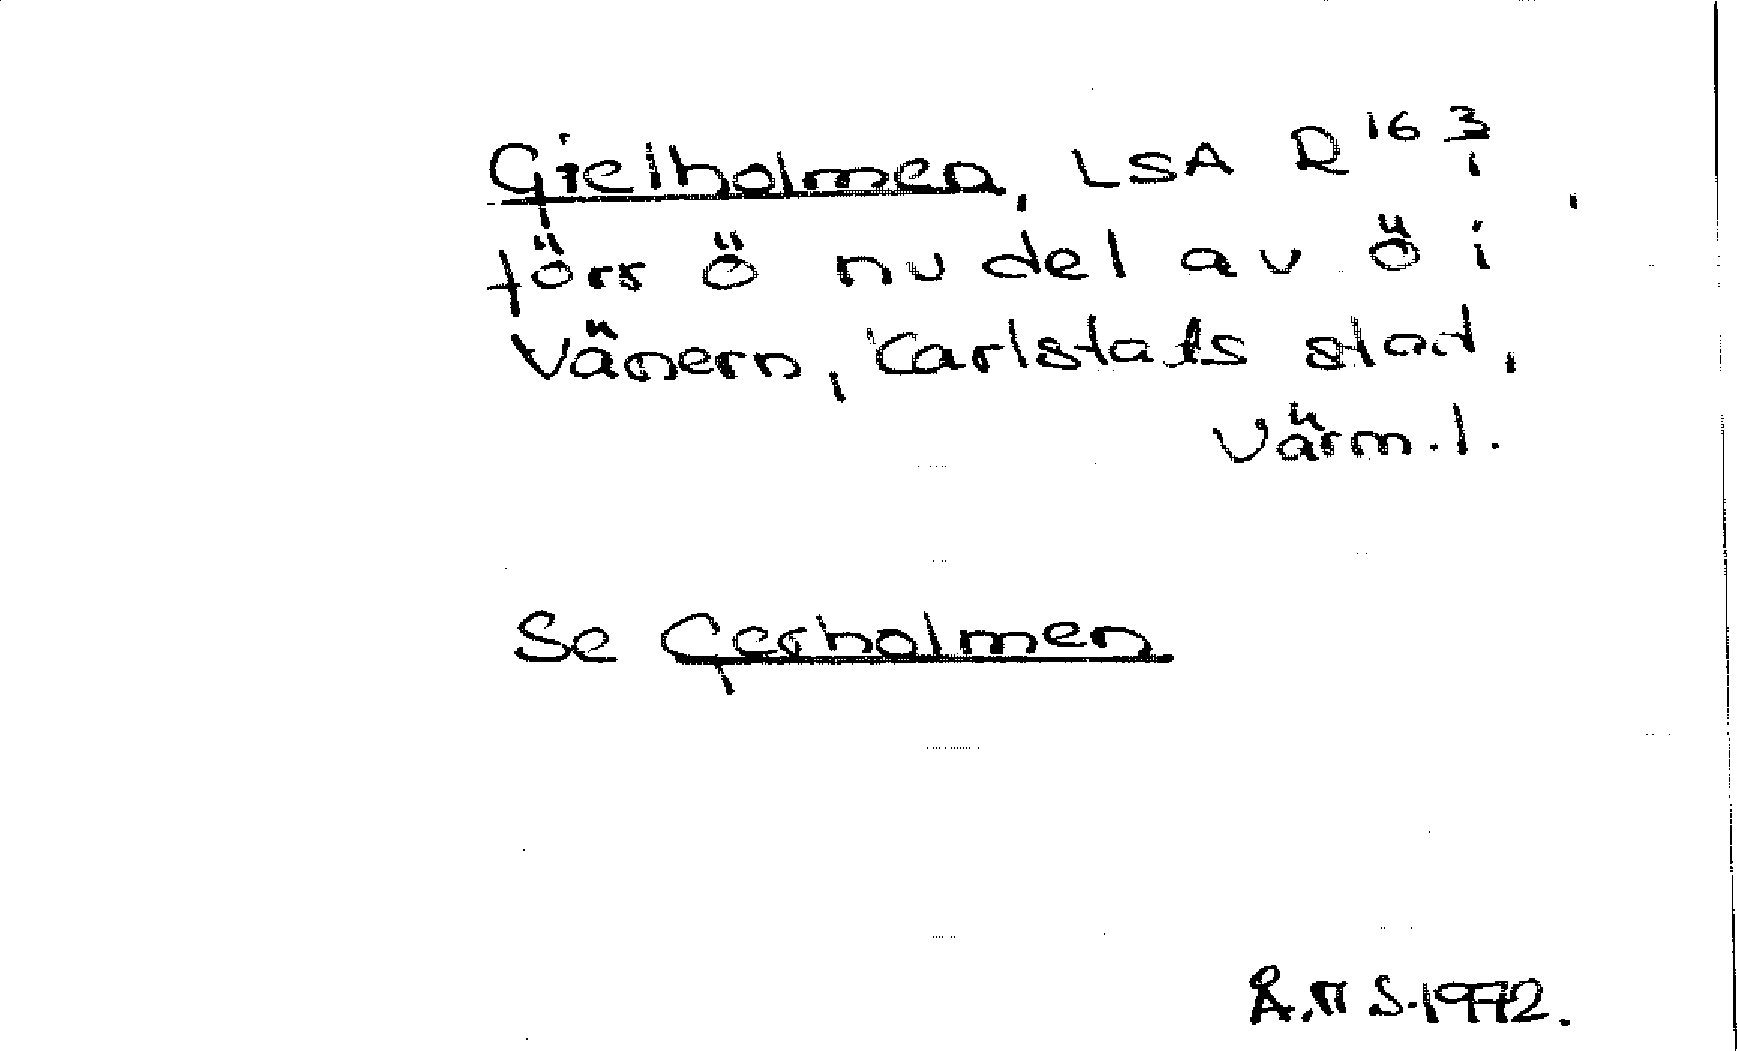 Gielholmen, LSA R 16 3/1,
förr ö nu del av ö i
Vänern, Carlstads stad,
Värm. l.
Se Gerholmen
Å.H S. 1972.